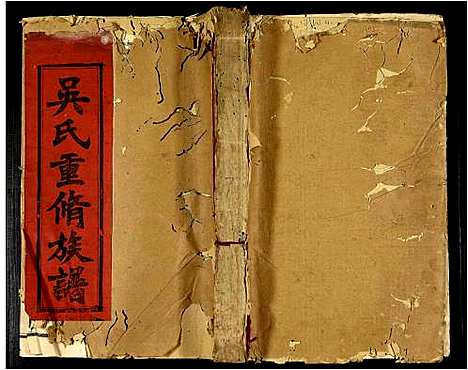 吳氏重脩族譜